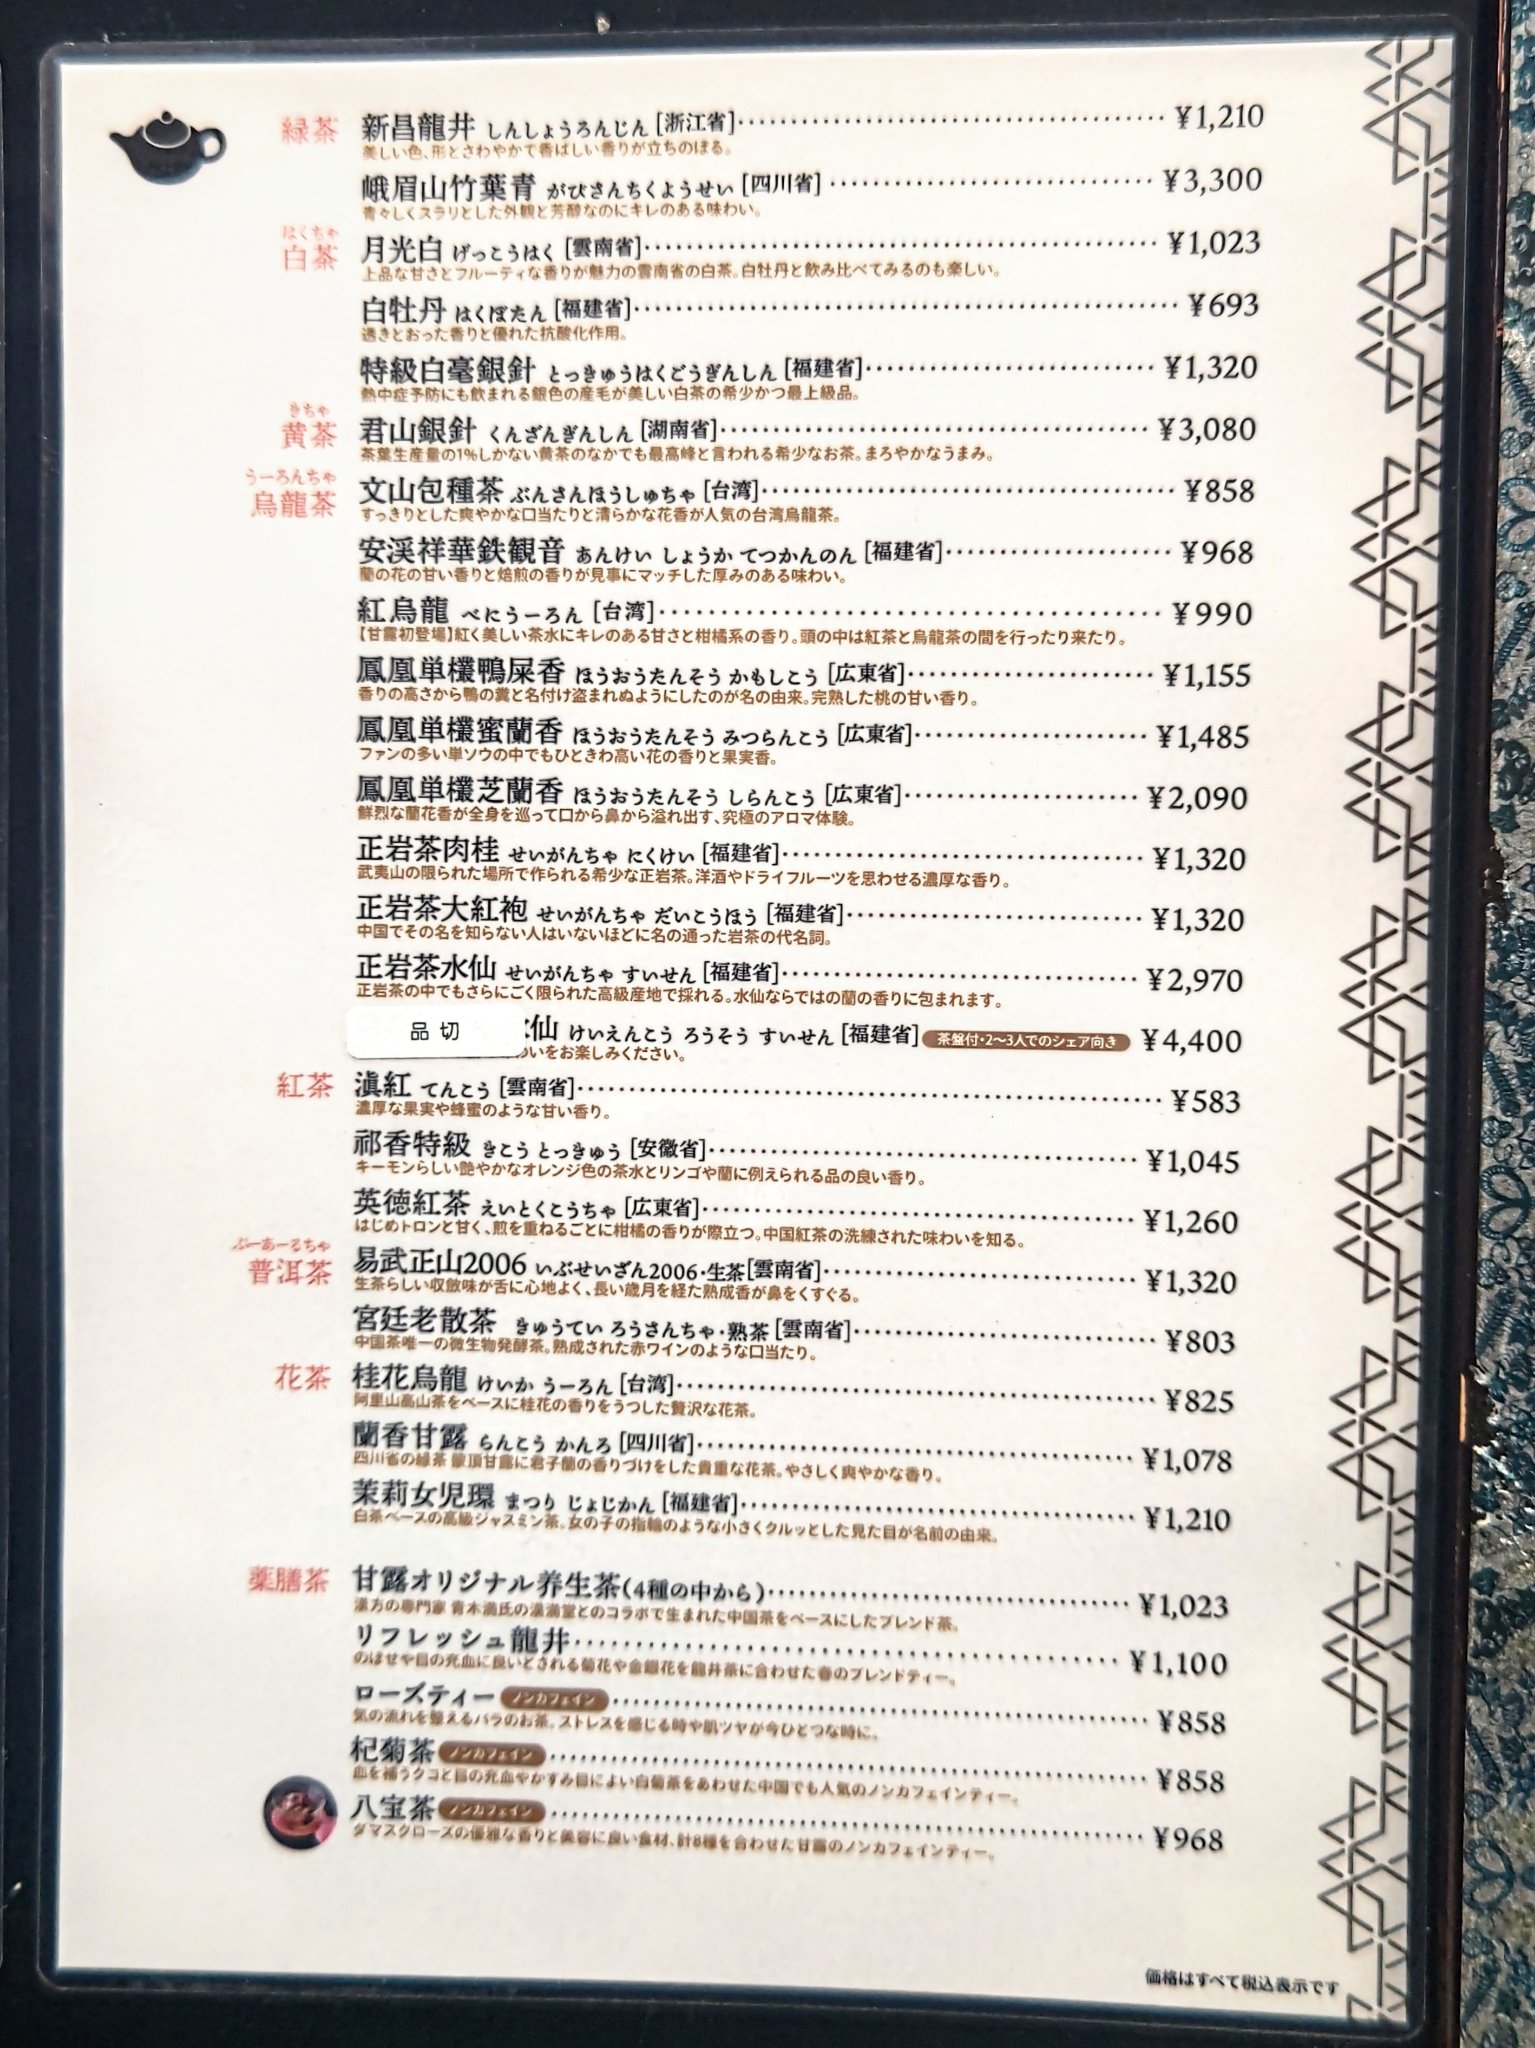 緑茶 新昌龍井 しんしょうろんじん [浙江省] ¥1,210
美しい色、形とさわやかで香ばしい香りが立ちのぼる。
峨眉山竹葉青 がびさんちくようせい [四川省] ¥3,300
青々しくスラリとした外観と芳醇なのにキレのある味わい。
はくちゃ
白茶 月光白 げっこうはく [雲南省] ¥1,023
上品な甘さとフルーティな香りが魅力の雲南省の白茶。白牡丹と飲み比べてみるのも楽しい。
白牡丹 はくぼたん [福建省] ¥693
透きとおった香りと優れた抗酸化作用。
特級白毫銀針 とっきゅうはくごうぎんしん [福建省] ¥1,320
熱中症予防にも飲まれる銀色の産毛が美しい白茶の希少かつ最上級品。
きちゃ
黄茶 君山銀針 くんざんぎんしん [湖南省] ¥3,080
茶葉生産量の1%しかない黄茶のなかでも最高峰と言われる希少なお茶。まろやかなうまみ。
うーろんちゃ
烏龍茶 文山包種茶 ぶんさんほうしゅちゃ [台湾] ¥858
すっきりとした爽やかな口当たりと清らかな花香が人気の台湾烏龍茶。
安渓祥華鉄観音 あんけい しょうか てつかんのん [福建省] ¥968
蘭の花の甘い香りと焙煎の香りが見事にマッチした厚みのある味わい。
紅烏龍 べにうーろん [台湾] ¥990
【甘露初登場】紅く美しい茶水にキレのある甘さと柑橘系の香り。頭の中は紅茶と烏龍茶の間を行ったり来たり。
鳳凰単欉鴨屎香 ほうおうたんそう かもしこう [広東省] ¥1,155
香りの高さから鴨の糞と名付け盗まれぬようにしたのが名の由来。完熟した桃の甘い香り。
鳳凰単欉蜜蘭香 ほうおうたんそう みつらんこう [広東省] ¥1,485
ファンの多い単ソウの中でもひときわ高い花の香りと果実香。
鳳凰単欉芝蘭香 ほうおうたんそう しらんこう [広東省] ¥2,090
鮮烈な蘭花香が全身を巡って口から鼻から溢れ出す、究極のアロマ体験。
正岩茶肉桂 せいがんちゃ にくけい [福建省] ¥1,320
武夷山の限られた場所で作られる希少な正岩茶。洋酒やドライフルーツを思わせる濃厚な香り。
正岩茶大紅袍 せいがんちゃ だいこうほう [福建省] ¥1,320
中国でその名を知らない人はいないほどに名の通った岩茶の代名詞。
正岩茶水仙 せいがんちゃ すいせん [福建省] ¥2,970
正岩茶の中でもさらにごく限られた高級産地で採れる。水仙ならではの蘭の香りに包まれます。
品切 仙 けいえんこう ろうそう すいせん [福建省] 茶盤付・2〜3人でのシェア向き ¥4,400
わいをお楽しみください。
紅茶 滇紅 てんこう [雲南省] ¥583
濃厚な果実や蜂蜜のような甘い香り。
祁香特級 きこう とっきゅう [安徽省] ¥1,045
キーモンらしい艶やかなオレンジ色の茶水とリンゴや蘭に例えられる品の良い香り。
英徳紅茶 えいとくこうちゃ [広東省] ¥1,260
はじめトロンと甘く、煎を重ねるごとに柑橘の香りが際立つ。中国紅茶の洗練された味わいを知る。
ぷーあーるちゃ
普洱茶 易武正山2006 いぶせいざん2006・生茶[雲南省] ¥1,320
生茶らしい収斂味が舌に心地よく、長い歳月を経た熟成香が鼻をくすぐる。
宮廷老散茶 きゅうてい ろうさんちゃ・熟茶 [雲南省] ¥803
中国茶唯一の微生物発酵茶。熟成された赤ワインのような口当たり。
花茶 桂花烏龍 けいか うーろん [台湾] ¥825
阿里山高山茶をベースに桂花の香りをうつした贅沢な花茶。
蘭香甘露 らんこう かんろ [四川省] ¥1,078
四川省の緑茶 蒙頂甘露に君子蘭の香りづけをした貴重な花茶。やさしく爽やかな香り。
茉莉女児環 まつり じょじかん [福建省] ¥1,210
白茶ベースの高級ジャスミン茶。女の子の指輪のような小さくクルッとした見た目が名前の由来。
薬膳茶 甘露オリジナル养生茶(4種の中から) ¥1,023
漢方の専門家 青木満氏の漢満堂とのコラボで生まれた中国茶をベースにしたブレンド茶。
リフレッシュ龍井 ¥1,100
のぼせや目の充血に良いとされる菊花や金銀花を龍井茶に合わせた春のブレンドティー。
ローズティー ノンカフェイン ¥858
気の流れを整えるバラのお茶。ストレスを感じる時や肌ツヤが今ひとつな時に。
杞菊茶 ノンカフェイン ¥858
血を補うクコと目の充血やかすみ目によい白菊茶をあわせた中国でも人気のノンカフェインティー。
八宝茶 ノンカフェイン ¥968
ダマスクローズの優雅な香りと美容に良い食材、計8種を合わせた甘露のノンカフェインティー。
価格はすべて税込表示です